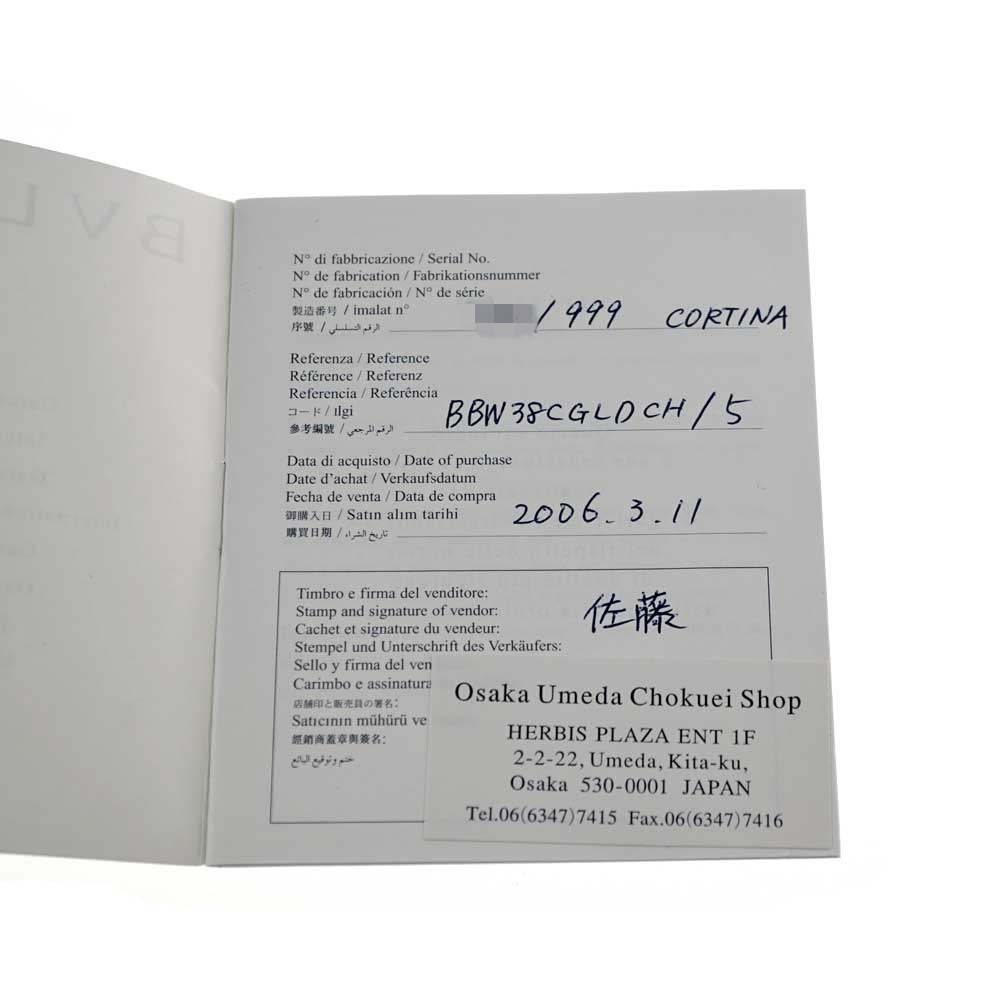 BVL
N° di fabbricazione / Serial No.
N° de fabrication / Fabrikationsnummer
N° de fabricación / N° de série
製造番号 / imalat n°
序號 / الرقم التسلسلي
/999 CORTINA
Referenza / Reference
Référence / Referenz
Referencia / Referência
コード / Ilgi
參考編號 / الرقم المرجعي
BBW38CGLDCH/5
Data di acquisto / Date of purchase
Date d'achat / Verkaufsdatum
Fecha de venta / Data de compra
御購入日 / Satın alım tarihi
購買日期 / تاريخ الشراء
2006.3.11
Timbro e firma del venditore:
Stamp and signature of vendor:
Cachet et signature du vendeur:
Stempel und Unterschrift des Verkäufers:
Sello y firma del ven
Carimbo e assinatura
店舗印と販売員の署名:
Satıcının mühürü ve
經銷商蓋章與簽名:
ختم وتوقيع البائع
佐藤
Osaka Umeda Chokuei Shop
HERBIS PLAZA ENT 1F
2-2-22, Umeda, Kita-ku,
Osaka 530-0001 JAPAN
Tel.06(6347)7415 Fax.06(6347)7416